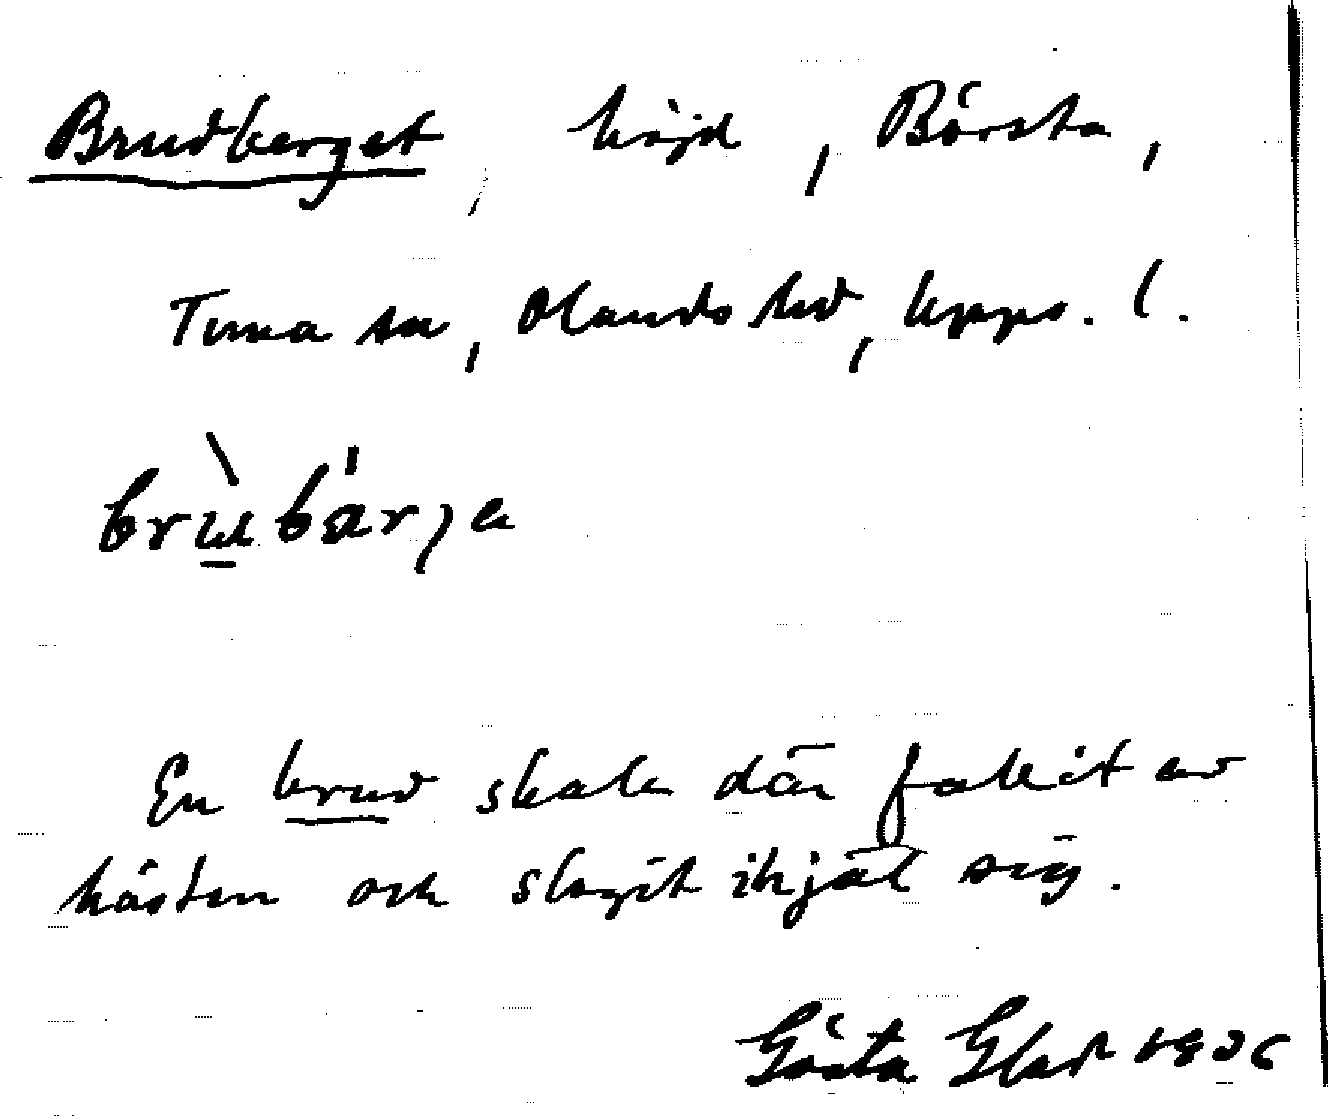 Brudberget, höjd, Börsta,
Tuna sn, Olands hd, Upps. l.
brùbárje
En brud skale där fallit av
hästen och slagit ihjäl sig.
Gösta